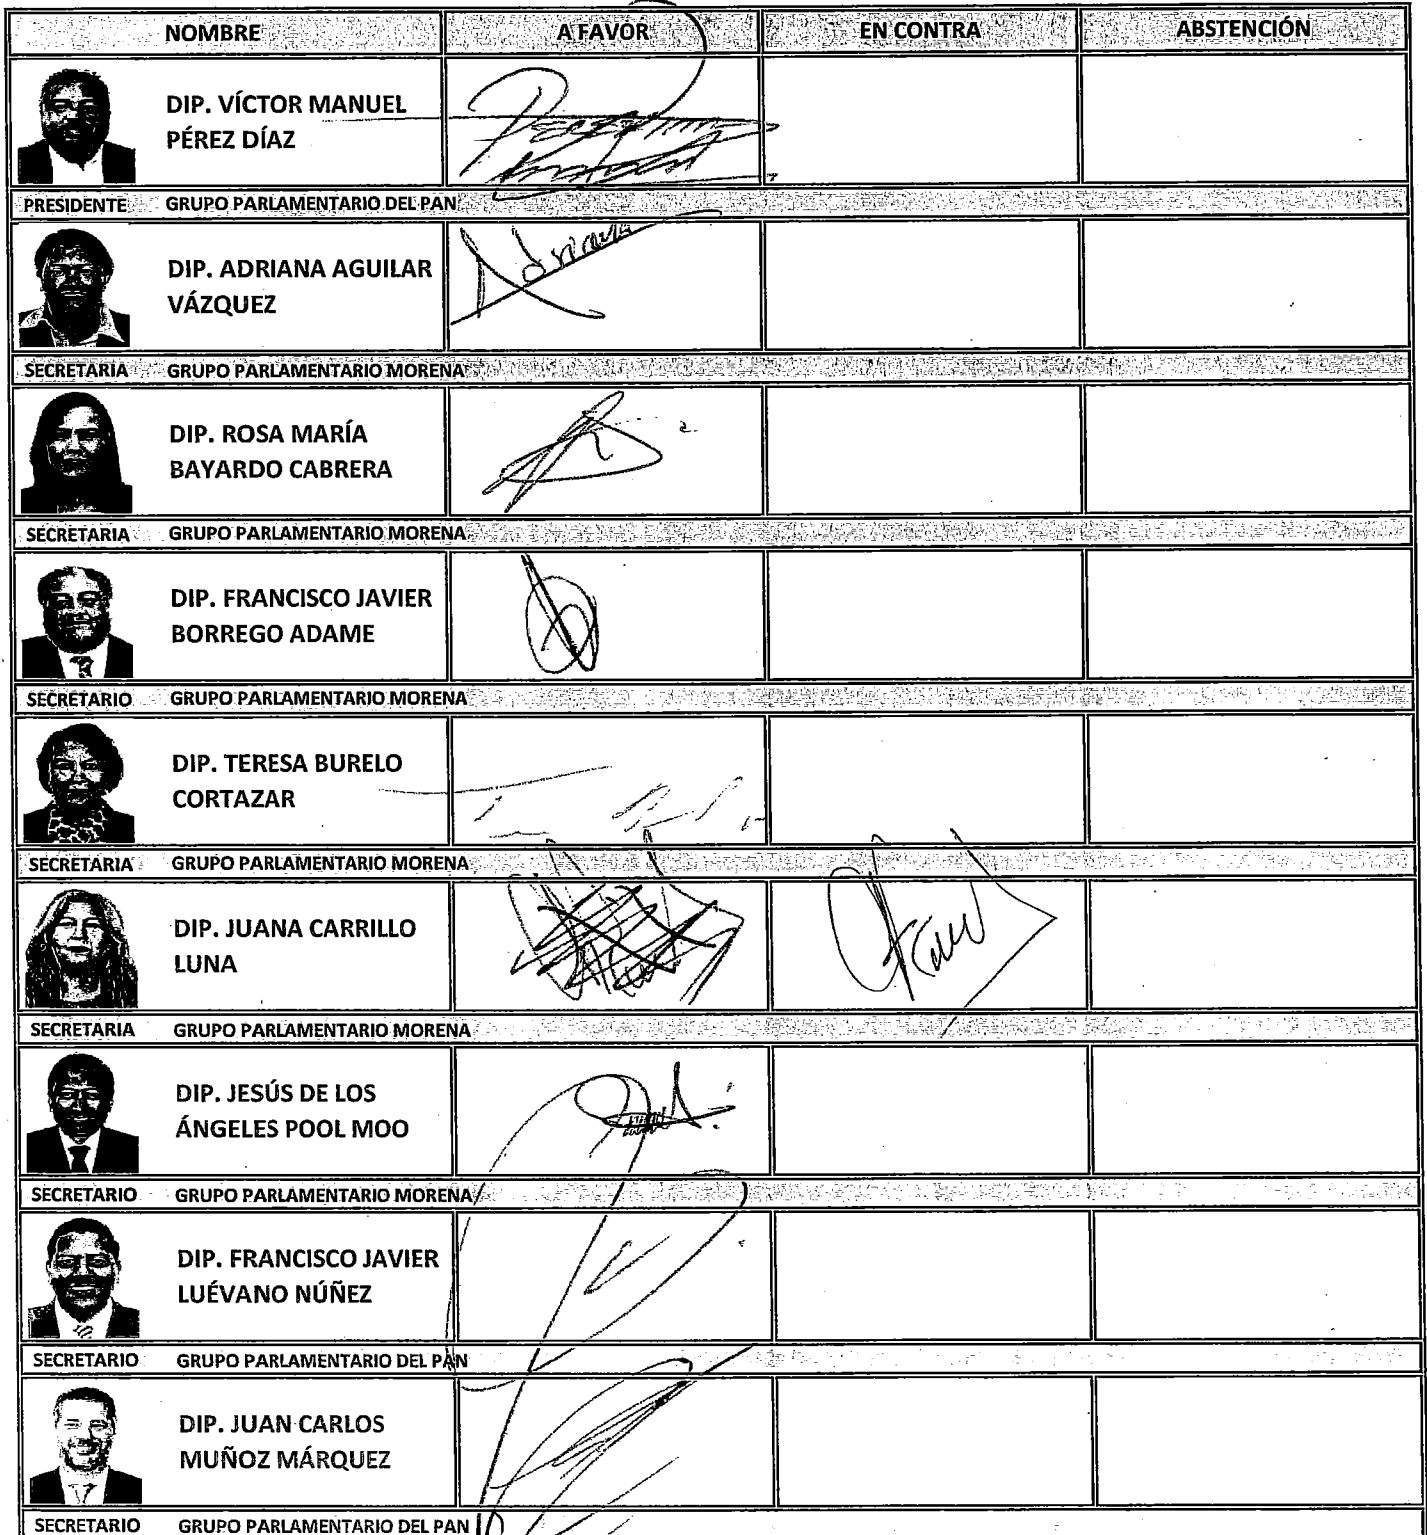 NOMBRE A FAVOR EN CONTRA ABSTENCIÓN
DIP. VÍCTOR MANUEL
PÉREZ DÍAZ
PRESIDENTE GRUPO PARLAMENTARIO DEL PAN
Adriana
DIP. ADRIANA AGUILAR
VÁZQUEZ
SECRETARIA GRUPO PARLAMENTARIO MORENA
DIP. ROSA MARÍA
BAYARDO CABRERA
SECRETARIA GRUPO PARLAMENTARIO MORENA
DIP. FRANCISCO JAVIER
BORREGO ADAME
SECRETARIO GRUPO PARLAMENTARIO MORENA
DIP. TERESA BURELO
CORTAZAR
SECRETARIA GRUPO PARLAMENTARIO MORENA
DIP. JUANA CARRILLO
LUNA
SECRETARIA GRUPO PARLAMENTARIO MORENA
DIP. JESÚS DE LOS
ÁNGELES POOL MOO
SECRETARIO GRUPO PARLAMENTARIO MORENA
DIP. FRANCISCO JAVIER
LUÉVANO NÚÑEZ
SECRETARIO GRUPO PARLAMENTARIO DEL PAN
DIP. JUAN CARLOS
MUÑOZ MÁRQUEZ
SECRETARIO GRUPO PARLAMENTARIO DEL PAN